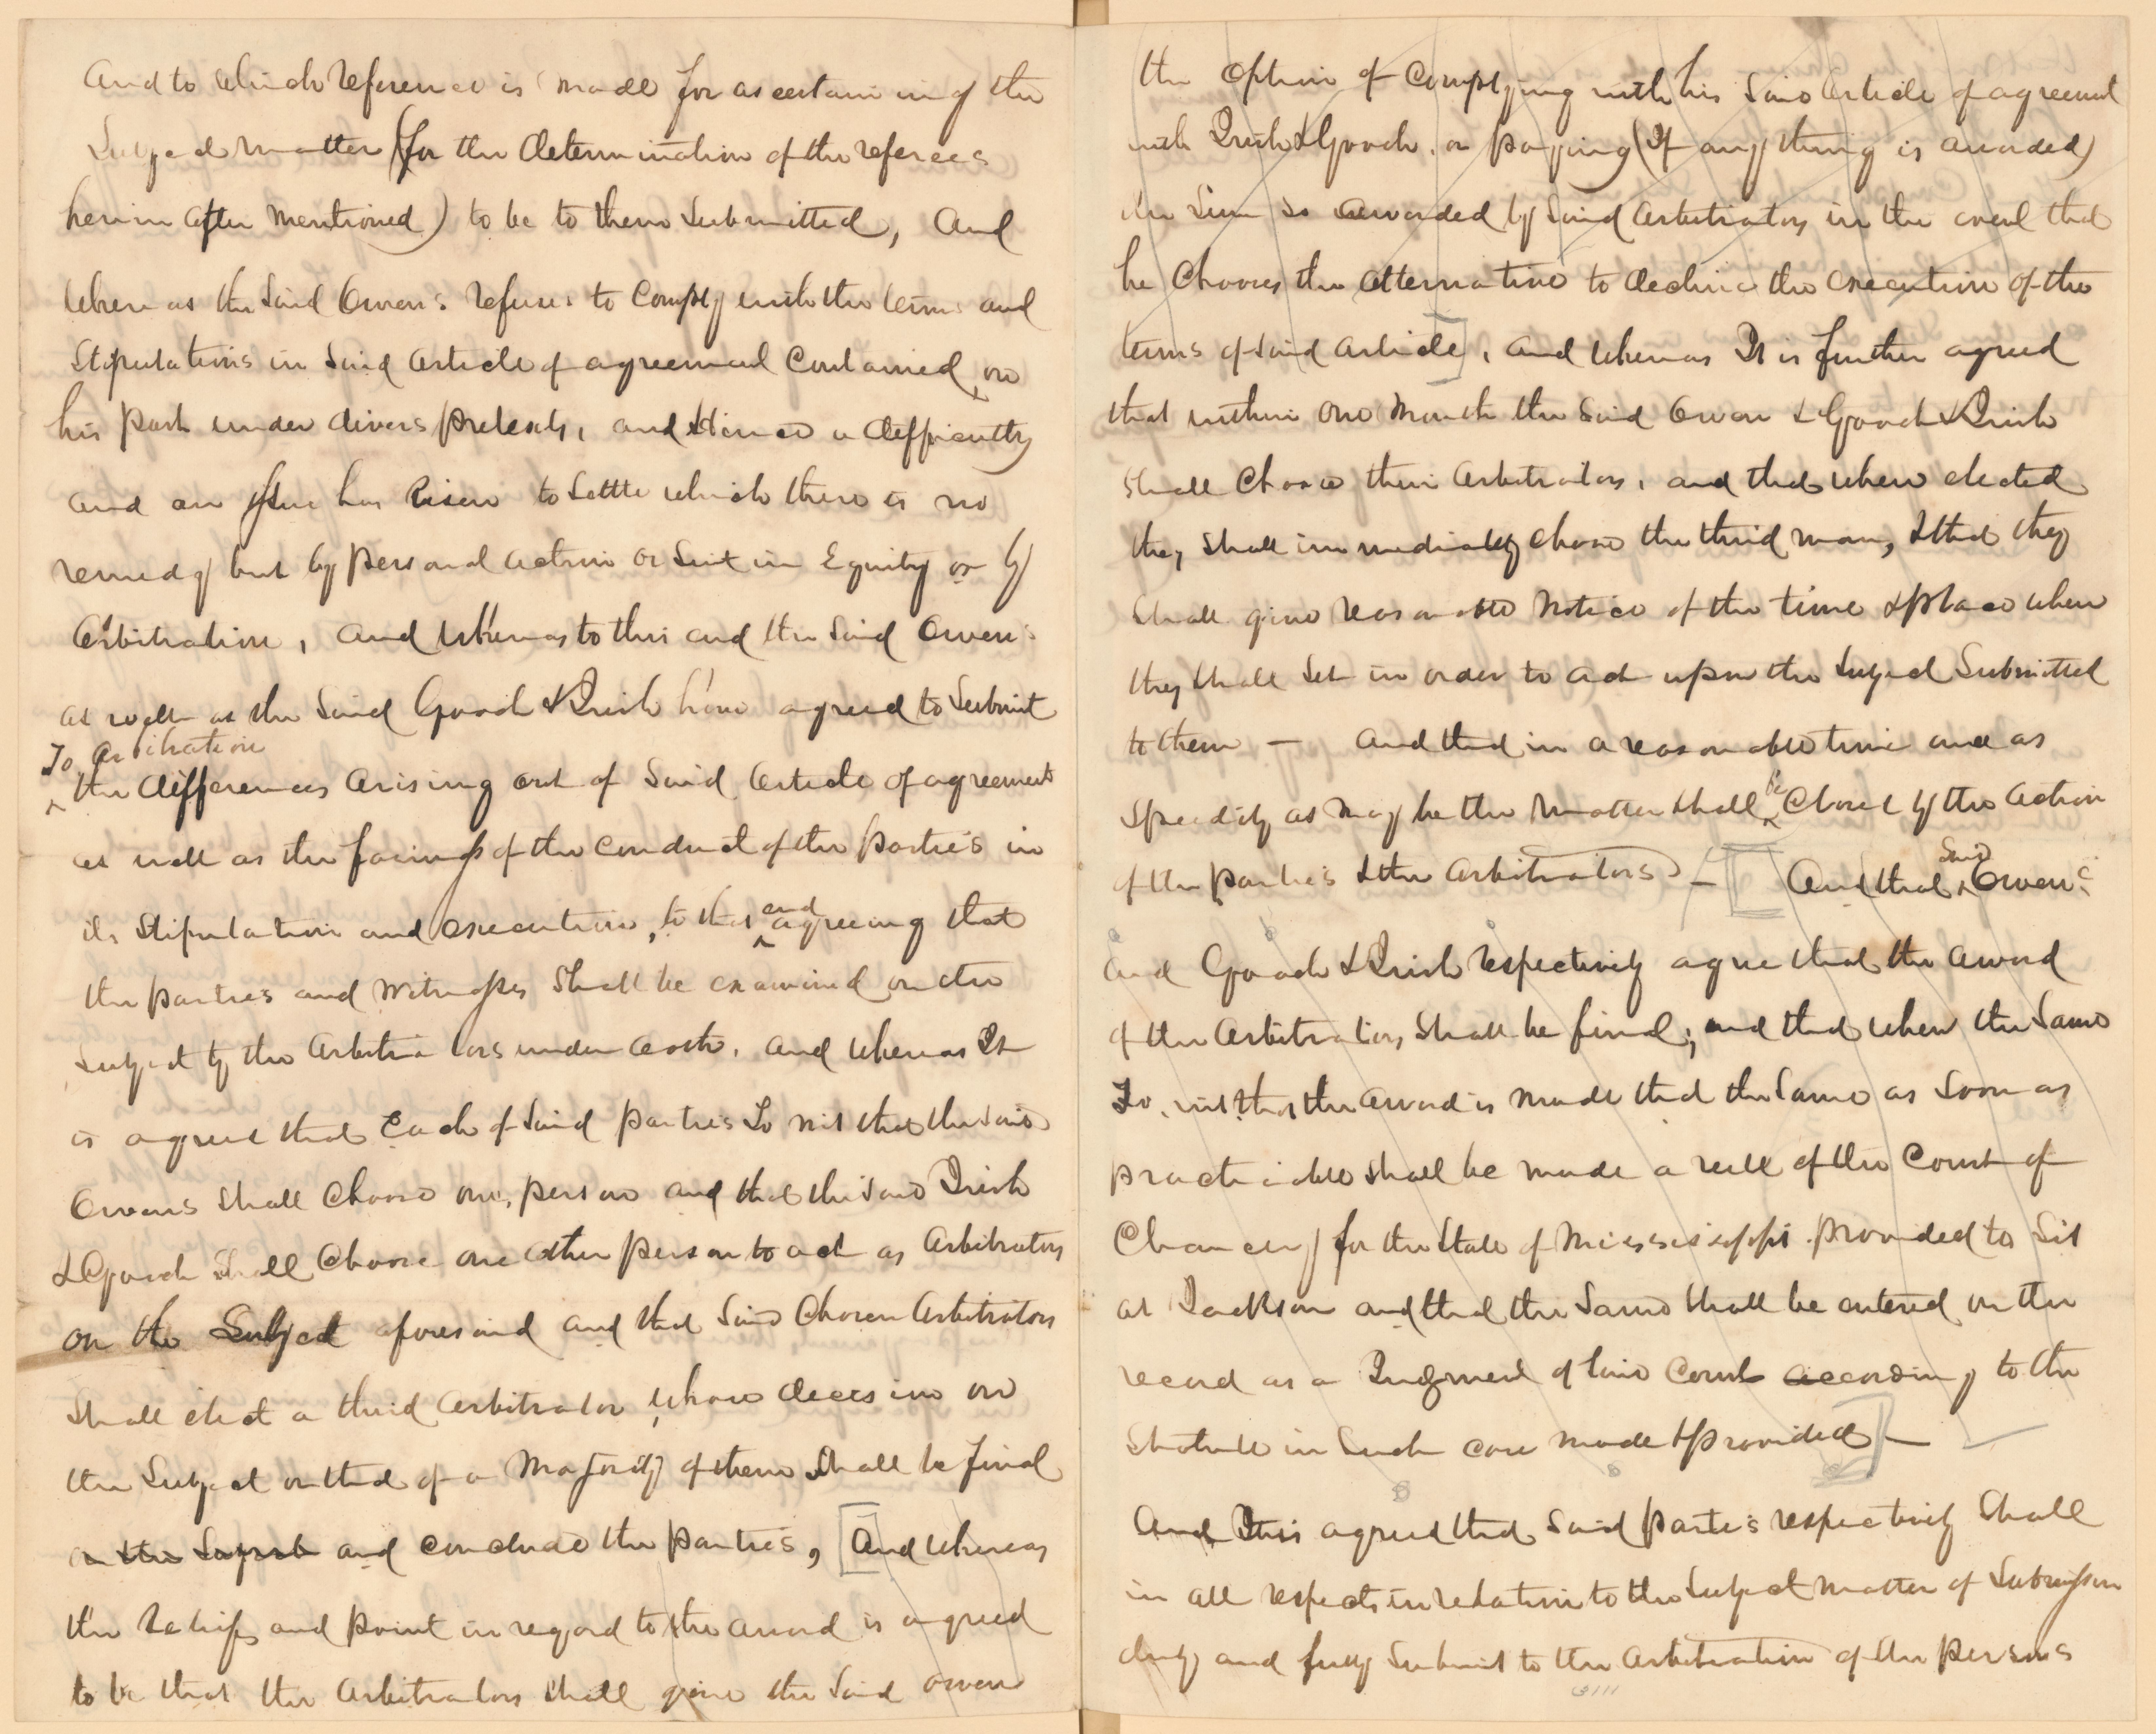 And to which reference is made for ascertaining the
Subject matter (for the determination of the referees
herein after mentioned) to be to them Submitted, And
whereas the Said Owens refuses to Comply with the terms and
Stipulations in Said Article of agreement Contained, on
his part under divers pretexts, and hence a difficulty
and an issue has risen to Settle which there is no
remedy but by personal action or Suit in Equity or by
Arbitration, And whereas to this end the Said Owens
as well as the Said Gooch & Irish have agreed to Submit
To Arbitration
the differences Arising out of Said Article of agreement
as well as the of the Conduct of the parties in
its Stipulation and execution, to that end agreeing that
the parties and Witnesses Shall be examined on the
Subject by the Arbitrators under oath. And whereas It
is agreed that Each of Said parties To wit that the Said
Owens Shall Choose one person and that the Said Irish
& Gooch Shall Choose one other person to act as Arbitrators
on the Subject aforesaid and that Said Chosen Arbitrators
Shall elect a third Arbitrator, whose decision on
the Subject or that of a Majority of them Shall be final
on the Subject and conclude the parties, [And whereas
the and point in regard to the award is agreed
to be that the Arbitrators Shall give the Said Owens
the Option of Complying with his Said Article of agreement
with Irish & Gooch, or paying (If any thing is awarded)
the Sum So awarded by Said Arbitrators in the event that
he Chooses the alternative to decline the execution of the
terms of Said Article], And whereas It is further agreed
that within One Month the Said Owen & Gooch & Irish
Shall Choose their Arbitrators, and that when elected
they Shall immediately choose the third man, & that they
Shall give reasonable Notice of the time & place when
they Shall Set in order to act upon the Subject Submitted
to them — And that in a reasonable time and as
Speedily as may be the matter Shall be Closed by the Action
of the parties & the Arbitrators — [And that Said Owens
And Gooch & Irish respectively agree that the award
of the Arbitrators Shall be final, and that when the Same
To wit that the award is made that the Same as Soon as
practicable Shall be made a rule of the Court of
Chancery for the State of Mississippi provided to Sit
at Jackson and that the Same Shall be entered on the
record as a Judgment of Said Court according to the
Statute in Such case made & provided] —
And It is agreed that Said parties respectively Shall
in all respects in relation to the Subject matter of Submission
duly and fully Submit to the Arbitration of the persons